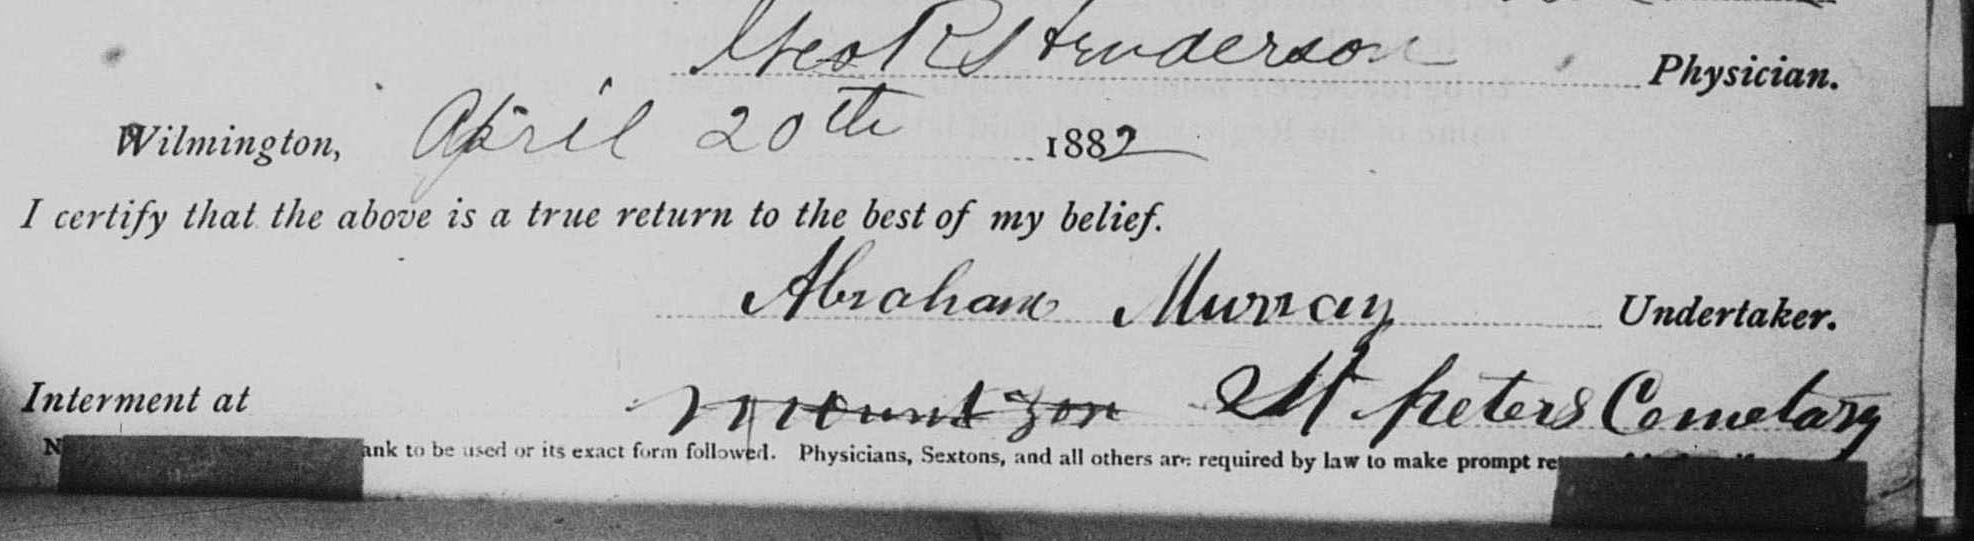 Geo R Henderson Physician.
Wilmington, April 20th 1882
I certify that the above is a true return to the best of my belief.
Abraham Murray Undertaker.
Interment at Mount Zon St. Peters Cemetary
ank to be used or its exact form followed. Physicians, Sextons, and all others are required by law to make prompt